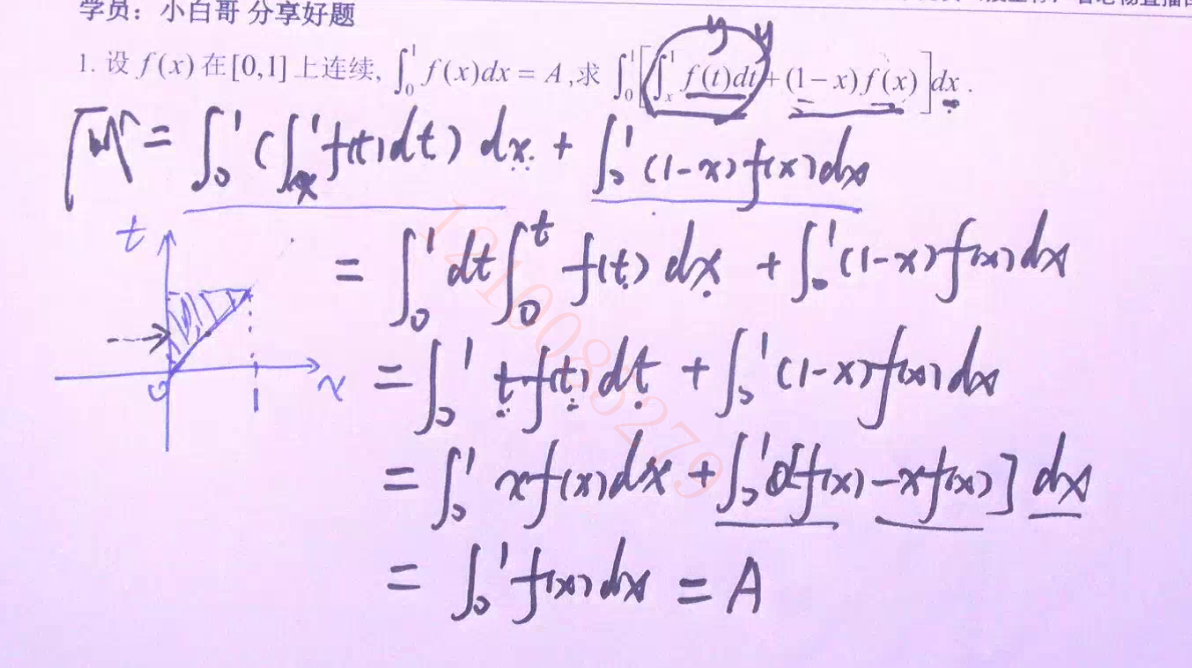 学员：小白哥 分享好题
1. 设 f(x) 在 [0,1] 上连续, ∫₀¹ f(x)dx = A ,求 ∫₀¹[∫ₓ¹ f(t)dt + (1−x) f(x)]dx .
y y
= ∫₀¹ (∫ₓ¹ f(t)dt) dx + ∫₀¹ (1-x) f(x)dx
= ∫₀¹ dt ∫₀ᵗ f(t) dx + ∫₀¹ (1-x) f(x)dx
= ∫₀¹ t f(t) dt + ∫₀¹ (1-x) f(x) dx
= ∫₀¹ x f(x)dx + ∫₀¹ [f(x) - x f(x)] dx
= ∫₀¹ f(x) dx = A
t
0 1 x
1210085279